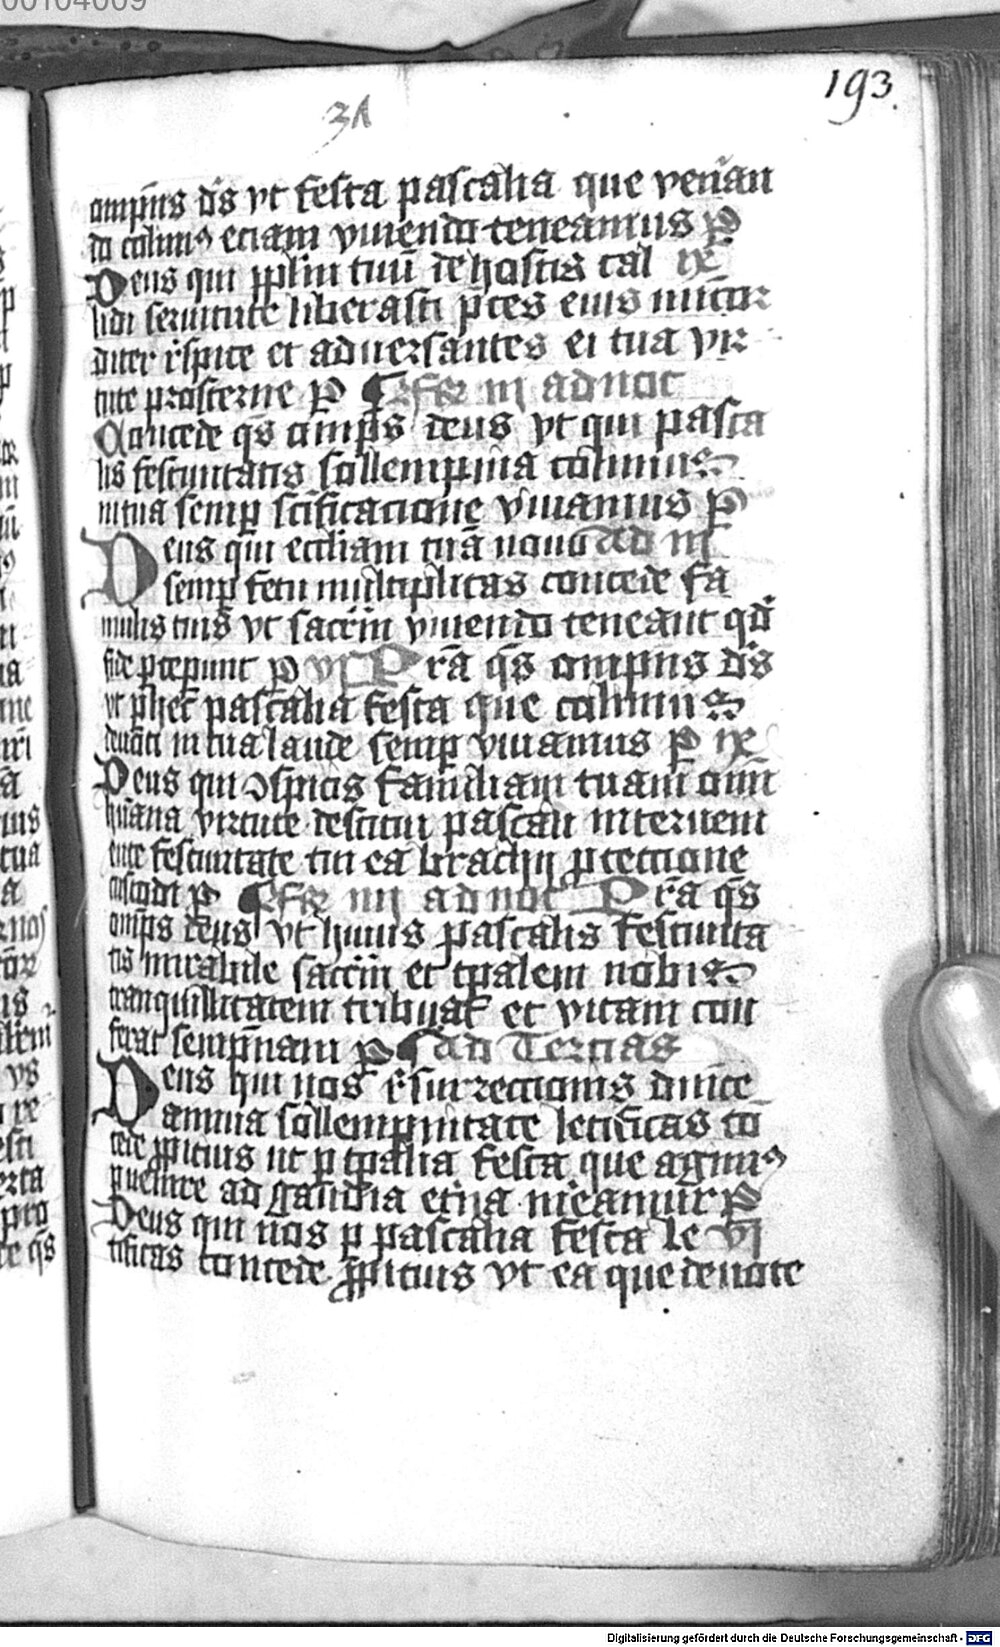 00104009
193.
31
omp̄ns d̄s vt festa pascalia que ven̄an
do colimꝰ eciam viuendo teneamus P
Deus qui pplm̄ tuū de hostis cal ix
lidi seruitute liberasti p̄ces eius mīcor
diter r̄spice et aduersantes ei tua vir
tute prosterne P Fer̄ iij ad noct
Concede qs̄ omp̄s deus vt qui pasca
lis festiuitatis sollempnia colimus
in tua semp sc̄ificacione viuamus P
Deus qui eccliam tuā nouo Ad iij
semp fetu multiplicas concede fa
mulis tuis vt sacr̄m viuendo teneant qd̄
fide p̄ceperunt P vj Pr̄a qs̄ omp̄ns d̄s
vt p̄het̄ pascalia festa que colimus
deuoti in tua laude semp viuamus P ix
Deus qui ↄspicis familiam tuam om̄i
hūana virtute destitui pascali interueni
ente festiuitate tui ea brachij ꝓtectione
custodi P Fer̄ iiij ad noct Pr̄a qs̄
omp̄s deus vt huius pascalis festiuita
tis mirabile sacr̄m et tp̄alem nobis
tranquillitatem tribuat et vitam con
ferat sempn̄am P Ad Tercias
Deus qui nos r̄surrectionis dn̄ice
annua sollempnitate letificas con
cede ꝓpicius ut p tp̄alia festa que agimꝰ
puenire ad gaudia et̄na m̄eamur P
Deus qui nos p pascalia festa le vj
tificas concede ꝓpicius vt ea que deuote
Digitalisierung gefördert durch die Deutsche Forschungsgemeinschaft - DFG